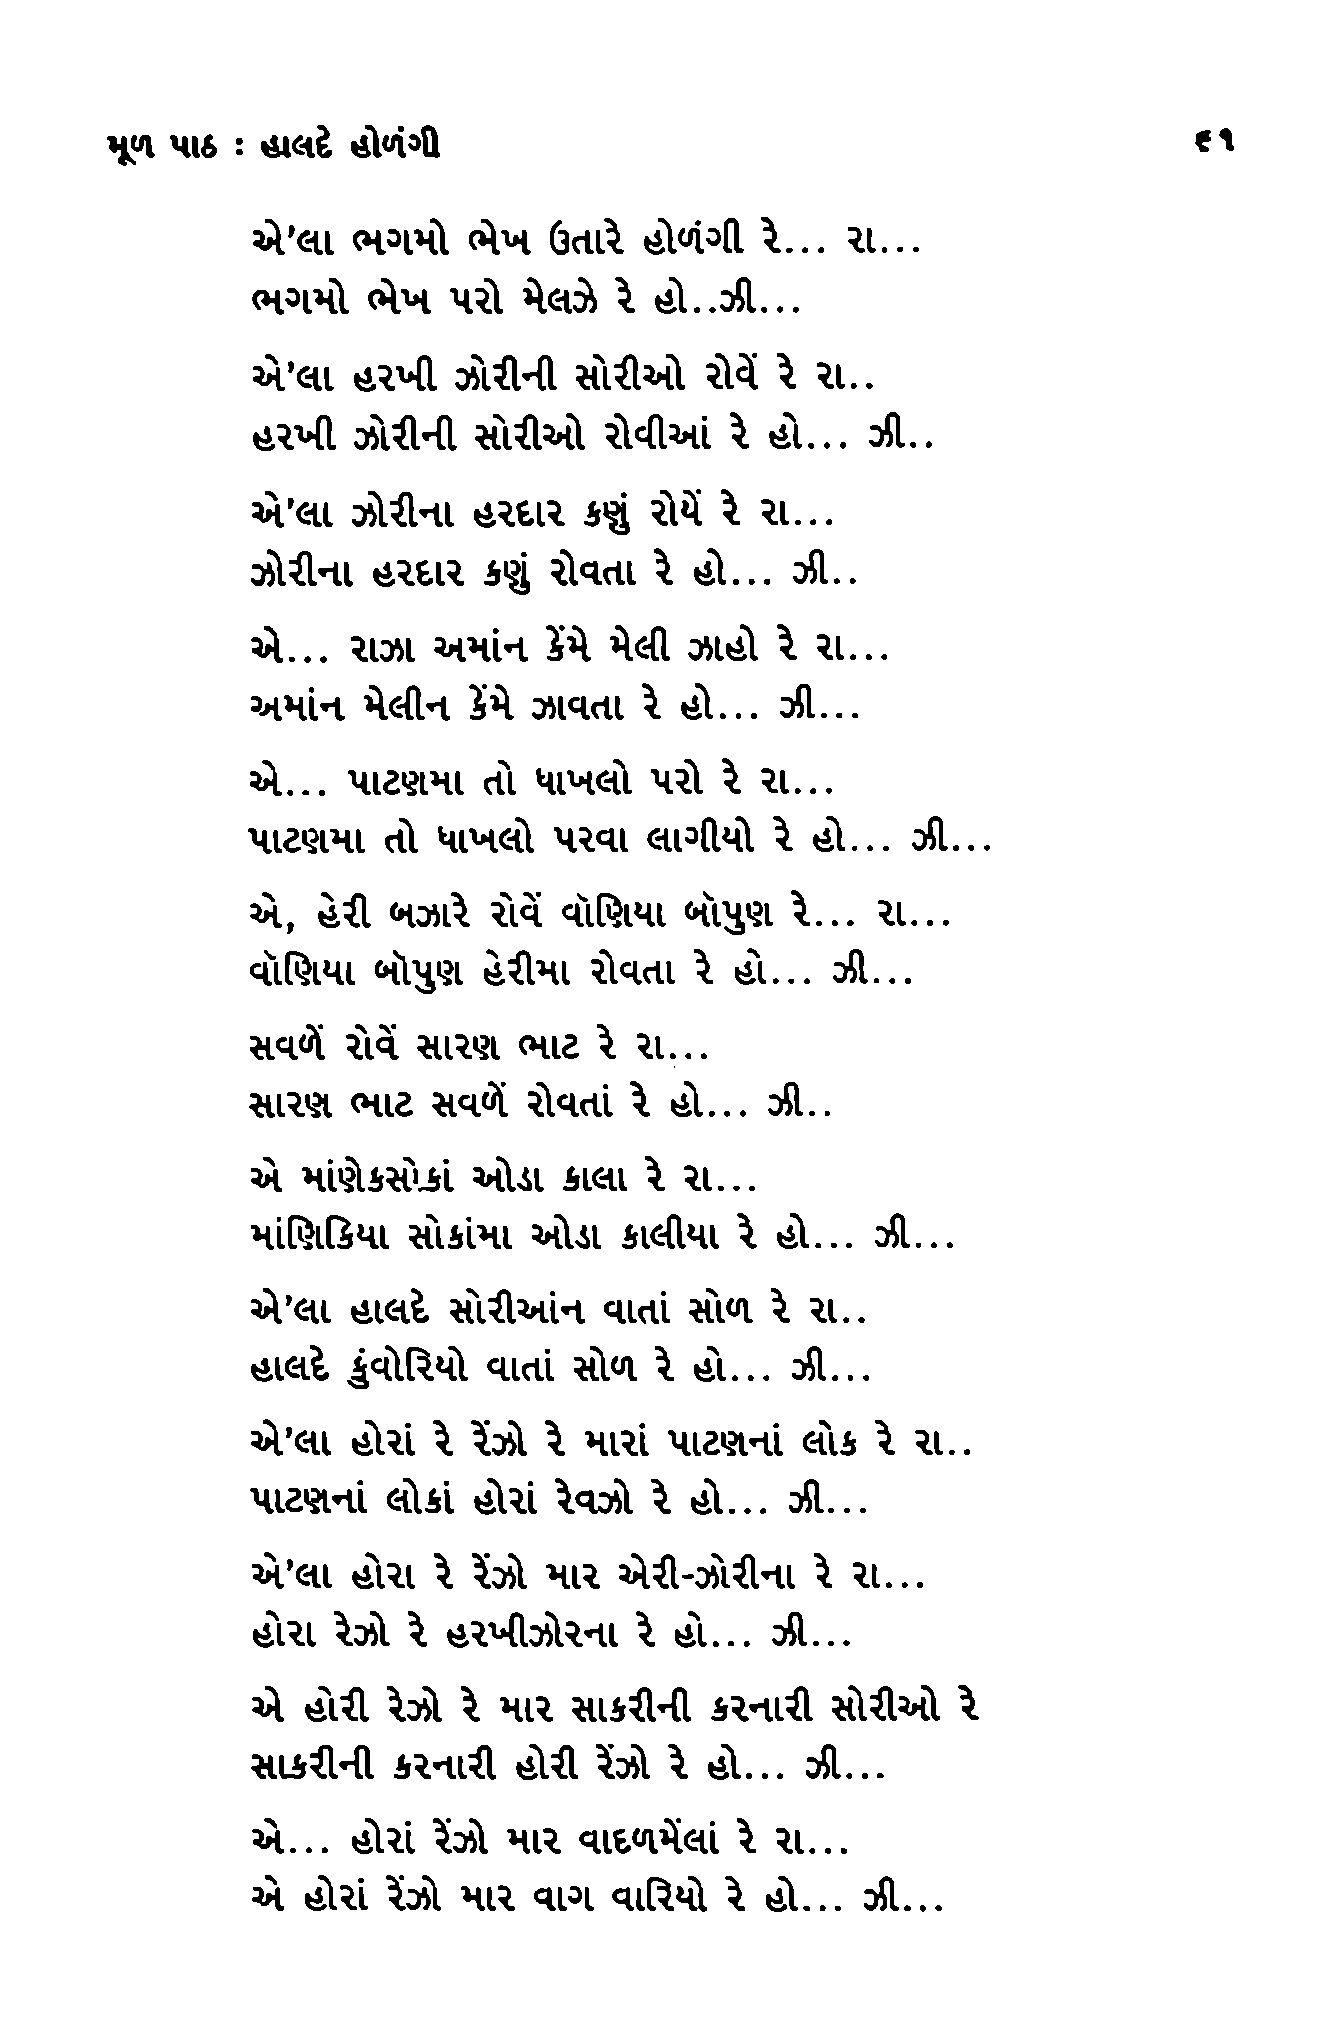 મૂળ પાઠ : હાલદે હોળંગી ૬૧
એ'લા ભગમો ભેખ ઉતારે હોળંગી રે... રા...
ભગમો ભેખ પરો મેલઝે રે હો..ઝી...
એ'લા હરખી ઝોરીની સોરીઓ રોવેં રે રા..
હરખી ઝોરીની સોરીઓ રોવીઆં રે હો... ઝી..
એ'લા ઝોરીના હરદાર કણું રોયેં રે રા...
ઝોરીના હરદાર કણું રોવતા રે હો... ઝી..
એ... રાઝા અમાંન કેંમે મેલી ઝાહો રે રા...
અમાંન મેલીન કેંમે ઝાવતા રે હો... ઝી...
એ... પાટણમા તો ધાખલો પરો રે રા...
પાટણમા તો ધાખલો પરવા લાગીયો રે હો... ઝી...
એ, હેરી બઝારે રોવેં વૉણિયા બૉપુણ રે... રા...
વૉણિયા બૉપુણ હેરીમા રોવતા રે હો... ઝી...
સવળેં રોવેં સારણ ભાટ રે રા...
સારણ ભાટ સવળેં રોવતાં રે હો... ઝી..
એ માંણેકસોકાં ઓડા કાલા રે રા...
માંણિકિયા સોકાંમા ઓડા કાલીયા રે હો... ઝી...
એ'લા હાલદે સોરીઆંન વાતાં સોળ રે રા..
હાલદે કુંવોરિયો વાતાં સોળ રે હો... ઝી...
એ'લા હોરાં રે રેંઝો રે મારાં પાટણનાં લોક રે રા..
પાટણનાં લોકાં હોરાં રેવઝો રે હો... ઝી...
એ'લા હોરા રે રેંઝો માર એરી-ઝોરીના રે રા...
હોરા રેઝો રે હરખીઝોરના રે હો... ઝી...
એ હોરી રેઝો રે માર સાકરીની કરનારી સોરીઓ રે
સાકરીની કરનારી હોરી રેંઝો રે હો... ઝી...
એ... હોરાં રેંઝો માર વાદળમેંલાં રે રા...
એ હોરાં રેંઝો માર વાગ વારિયો રે હો... ઝી...